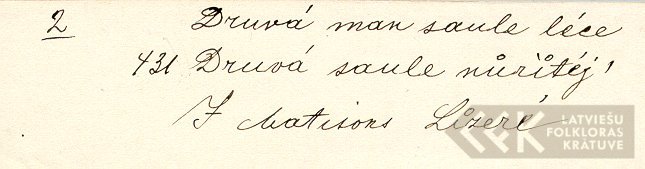 2 Druvá man saule léce
431 Druvá saule nůrítéj'
J Matisons Lízeré
LFK LATVIEŠU
FOLKLORAS
KRĀTUVE